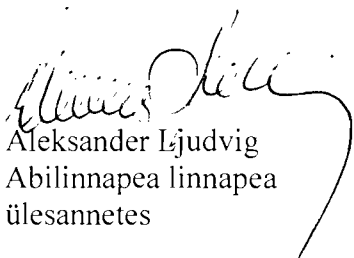 Aleksander Ljudvig
Abilinnapea linnapea
ülesannetes